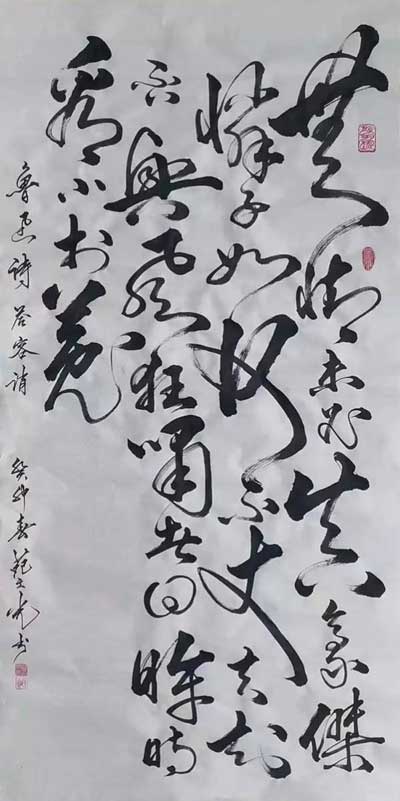 無情未必真豪傑
憐子如何不丈夫知
否興風狂嘯者回眸時
看小於菟
魯迅詩 答客誚 癸卯春 範光书